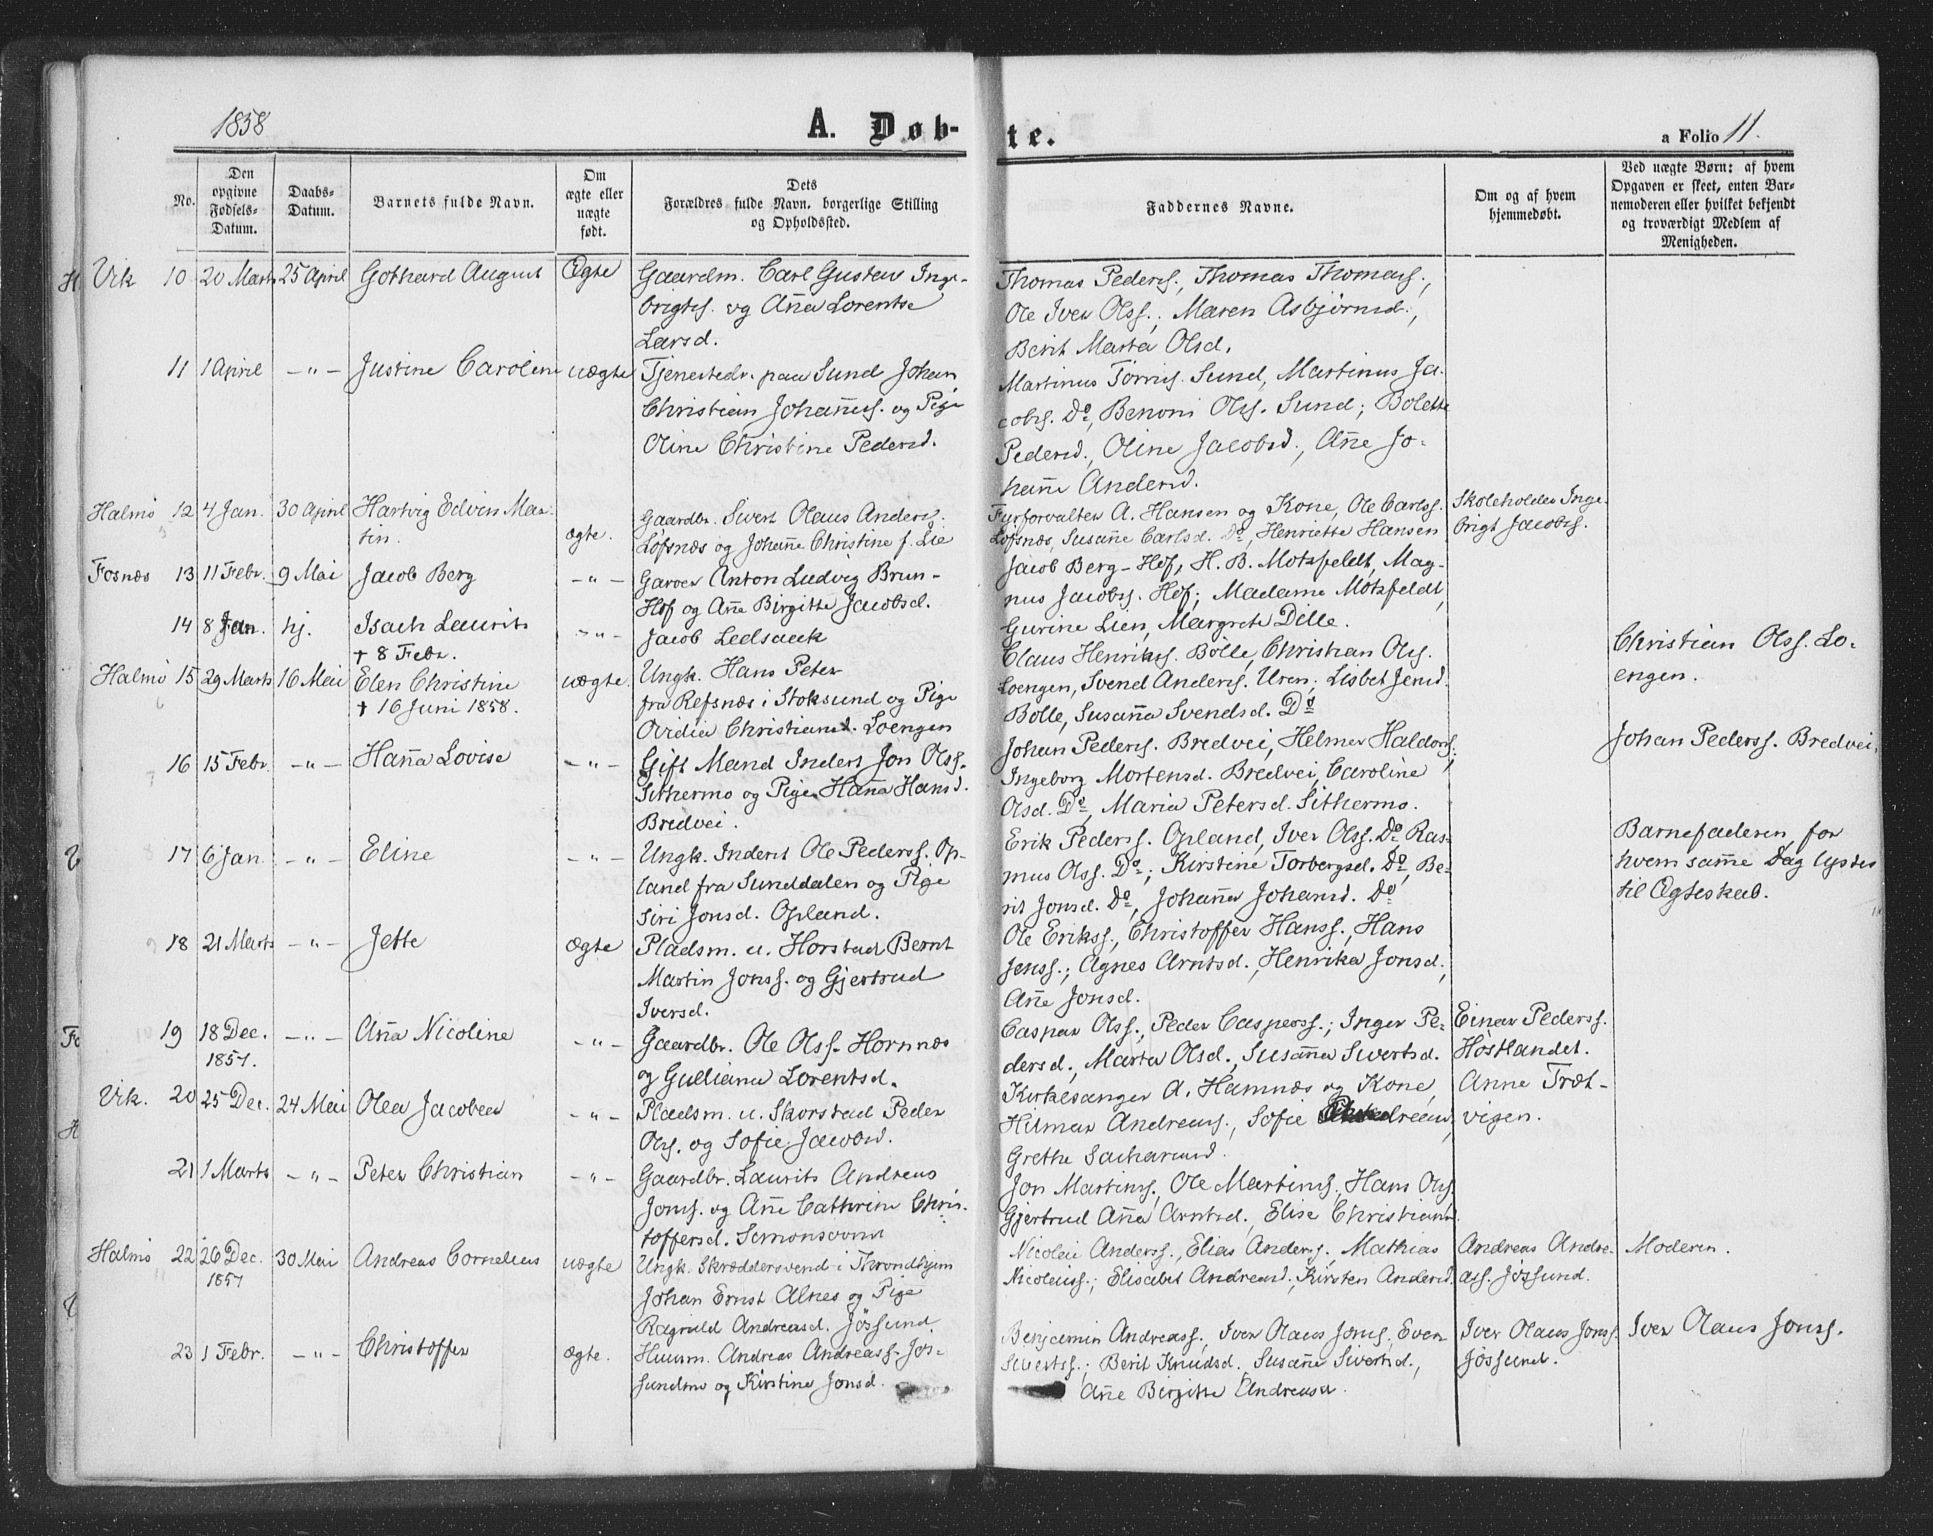 1858
A. Døb-
te.
a Folio 11.
No.
Den
opgivne
Fødsels-
Datum.
Daabs-
Datum.
Barnets fulde Navn.
Om
ægte eller
uægte
født.
Dets
Forældres fulde Navn, borgerlige Stilling
og Opholdssted.
Faddernes Navne.
Om og af hvem
hjemmedøbt.
Ved uægte Børn: af hvem
Opgaven er skeet, enten Bar-
nemoderen eller hvilket bekjendt
og troværdigt Medlem af
Menigheden.
Vik 10 20 Marts 25 April Gothard August Ægte
Gaardm. Carl Gustav Inge-
brigts. og Aña Lorentse
Larsd.
Thomas Peders., Thomas Thomass.,
Ole Iver Olss.; Maren Asbjørnsd.,
Berit Marta Olsd.
11 1 April -"- Justine Caroline uægte
Tjenestedr. paa Sund Johan
Christian Johañess. og Pige
Oline Christine Pedersd.
Martinus Torris. Sund, Martinus Ja-
cobs. Do, Benoni Olss. Sund; Bolette
Pedersd., Oline Jacobsd., Añe Jo-
hañe Andersd.
Halmø 12 4 Jan. 30 April Hartvig Edvin Mar-
tin. ægte.
Gaardbr. Sivert Olaus Anders.
Lofsnæs og Johañe Christine f. Lie
Fyrforvalter A. Hansen og Kone, Ole Carlss.
Lofsnæs, Susañe Carlsd. Do, Henriette Hansen
Skoleholder Inge-
brigt Jacobs.
Fosnæs 13 11 Febr. 9 Mai Jacob Berg -"-
Garver Anton Ludvig Brun-
Hof og Añe Birgitte Jacobsd.
Jacob Berg - Hof, H. B. Motzfeldt, Mag-
nus Jacobs. Hof; Madame Motzfeldt,
Gurine Lien, Margrete Dille.
14 8 Jan. hj. Isach Laurits
† 8 Febr. -"-
Jacob Ledsaak
Halmø 15 29 Marts 16 Mai Elen Christine
† 16 Juni 1858. uægte.
Ungk. Hans Peter
fra Refsnæs i Stoksund og Pige
Ovidia Christiansd. Loengen
Claus Henriks. Bölle, Christian Ols.
Loengen, Svend Anders. Uren; Lisbet Jensd.
Bölle, Susaña Svendsd. Do
Christian Olss. Lo-
engen.
16 15 Febr. -"- Haña Lovise -"-
Gift Mand Inders Jon Olss.
Sithermo og Pige Haña Hansd.
Bredvei.
Johan Peders. Bredvei, Helmer Haldors.,
Ingeborg Mortensd. Bredvei, Caroline
Olsd. Do, Maria Petersd. Sithermo.
Johan Pederss. Bredvei.
17 6 Jan. -"- Eline -"-
Ungk. Inderst Ole Pederss. Op-
land fra Sunddalen og Pige
Siri Jonsd. Opland.
Erik Peders. Opland, Iver Olss. Do Ras-
mus Olss. Do; Kirstine Torbergsd. Do, Be-
rit Jonsd. Do, Johaña Johansd. Do
Barnefaderen, for
hvem sam̃e Dag lystes
til Ægteskab.
18 21 Marts -"- Jette ægte
Pladsm. u. Horstad Bernt
Martin Jonss. og Gjertrud
Iversd.
Ole Erikss., Christoffer Hanss., Hans
Jenss.; Agnes Arntsd., Henrika Jonsd.,
Añe Jonsd.
19 18 Dec.
1857. -"- Aña Nicoline -"-
Gaardbr. Ole Olss. Hornnæs
og Gulliana Lorentsd.
Caspar Olss., Peder Casperss.; Inger Pe-
dersd., Marta Olsd., Susaña Sivertsd.
Einar Pederss.
Høstlandet.
Vik. 20 25 Dec. 24 Mai Olea Jacobea -"-
Pladsm. u. Skorstad Peder
Ols. og Sofie Jacobsd.
Kirkesanger A. Hamnæs og Kone,
Hilmar Andreass., Sofie Andreasd,
Grethe Sachariasd.
Anne Træt-
vigen.
21 1 Marts -"- Peter Christian -"-
Gaardbr. Laurits Andreas
Jonss. og Añe Cathrine Chris-
toffersd. Semonsovnd
Jon Martins., Ole Martins., Hans Ols.
Gjertrud Aña Arntsd., Elise Christiansd.
Halmø 22 26 Dec.
1857 30 Mai Andreas Cornelius uægte
Ungk. Skræddersvend i Throndhjem
Johan Ernst Alnes og Pige
Ragnild Andreasd. Jøssund.
Nicolai Anderss., Elias Anders., Mathias
Nicolaiss.; Elisabet Andreasd., Kirsten Andersd.
Andreas Andre-
ass. Jøssund.
Moderen.
23 1 Febr. -"- Christoffer ægte.
Huusm. Andreas Andreass. Jøs-
sundmo og Kirstine Jonsd.
Benjamin Andreass., Iver Olaus Jonss., Even
Sivertss.; Berit Knudsd. Susañe Sivertsd.,
Añe Birgitte Andreasd.
Iver Olaus Jonss.
Jøssund.
Iver Olaus Jonss.